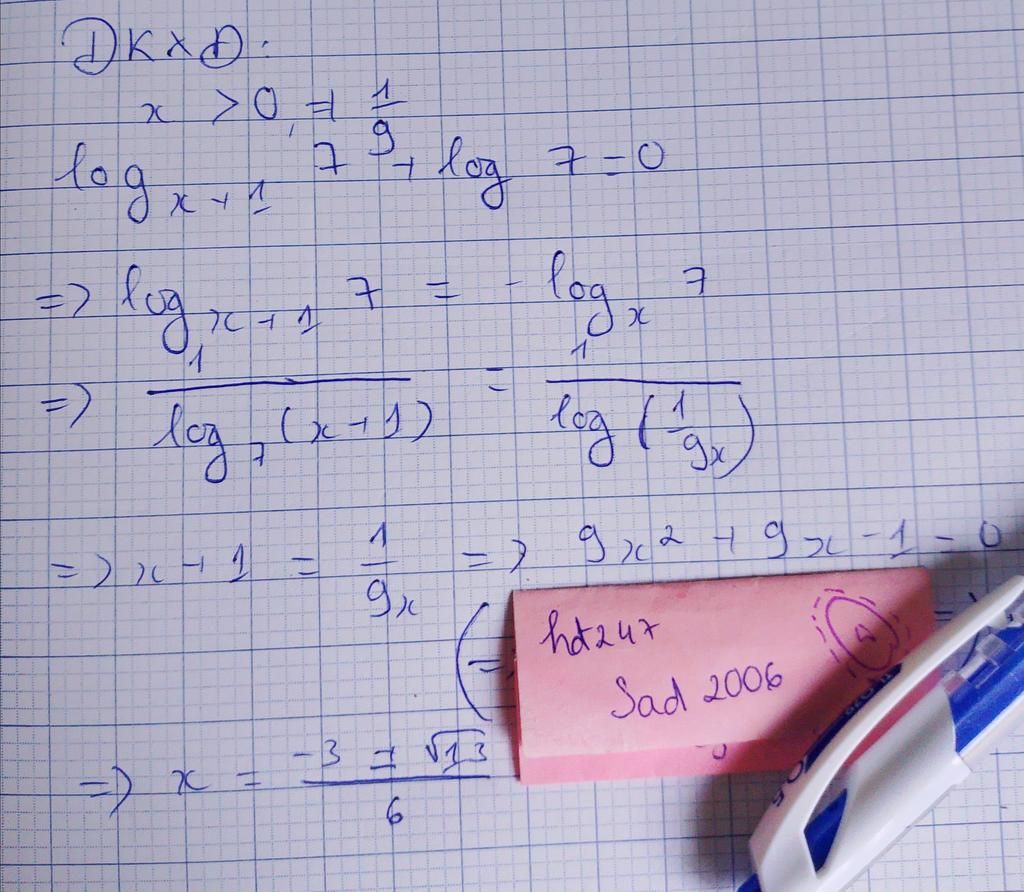 ĐKXĐ:
x > 0, ≠ 1/9
log_{x+1} 7 + log 7 = 0
=> log_{x+1} 7 = - log_x 7
=> 1/(log_7 (x+1)) = 1/(log (1/9x))
=> x + 1 = 1/9x => 9x² + 9x - 1 = 0
hdt247
Sad 2006
=> x = (-3 = √13)/6